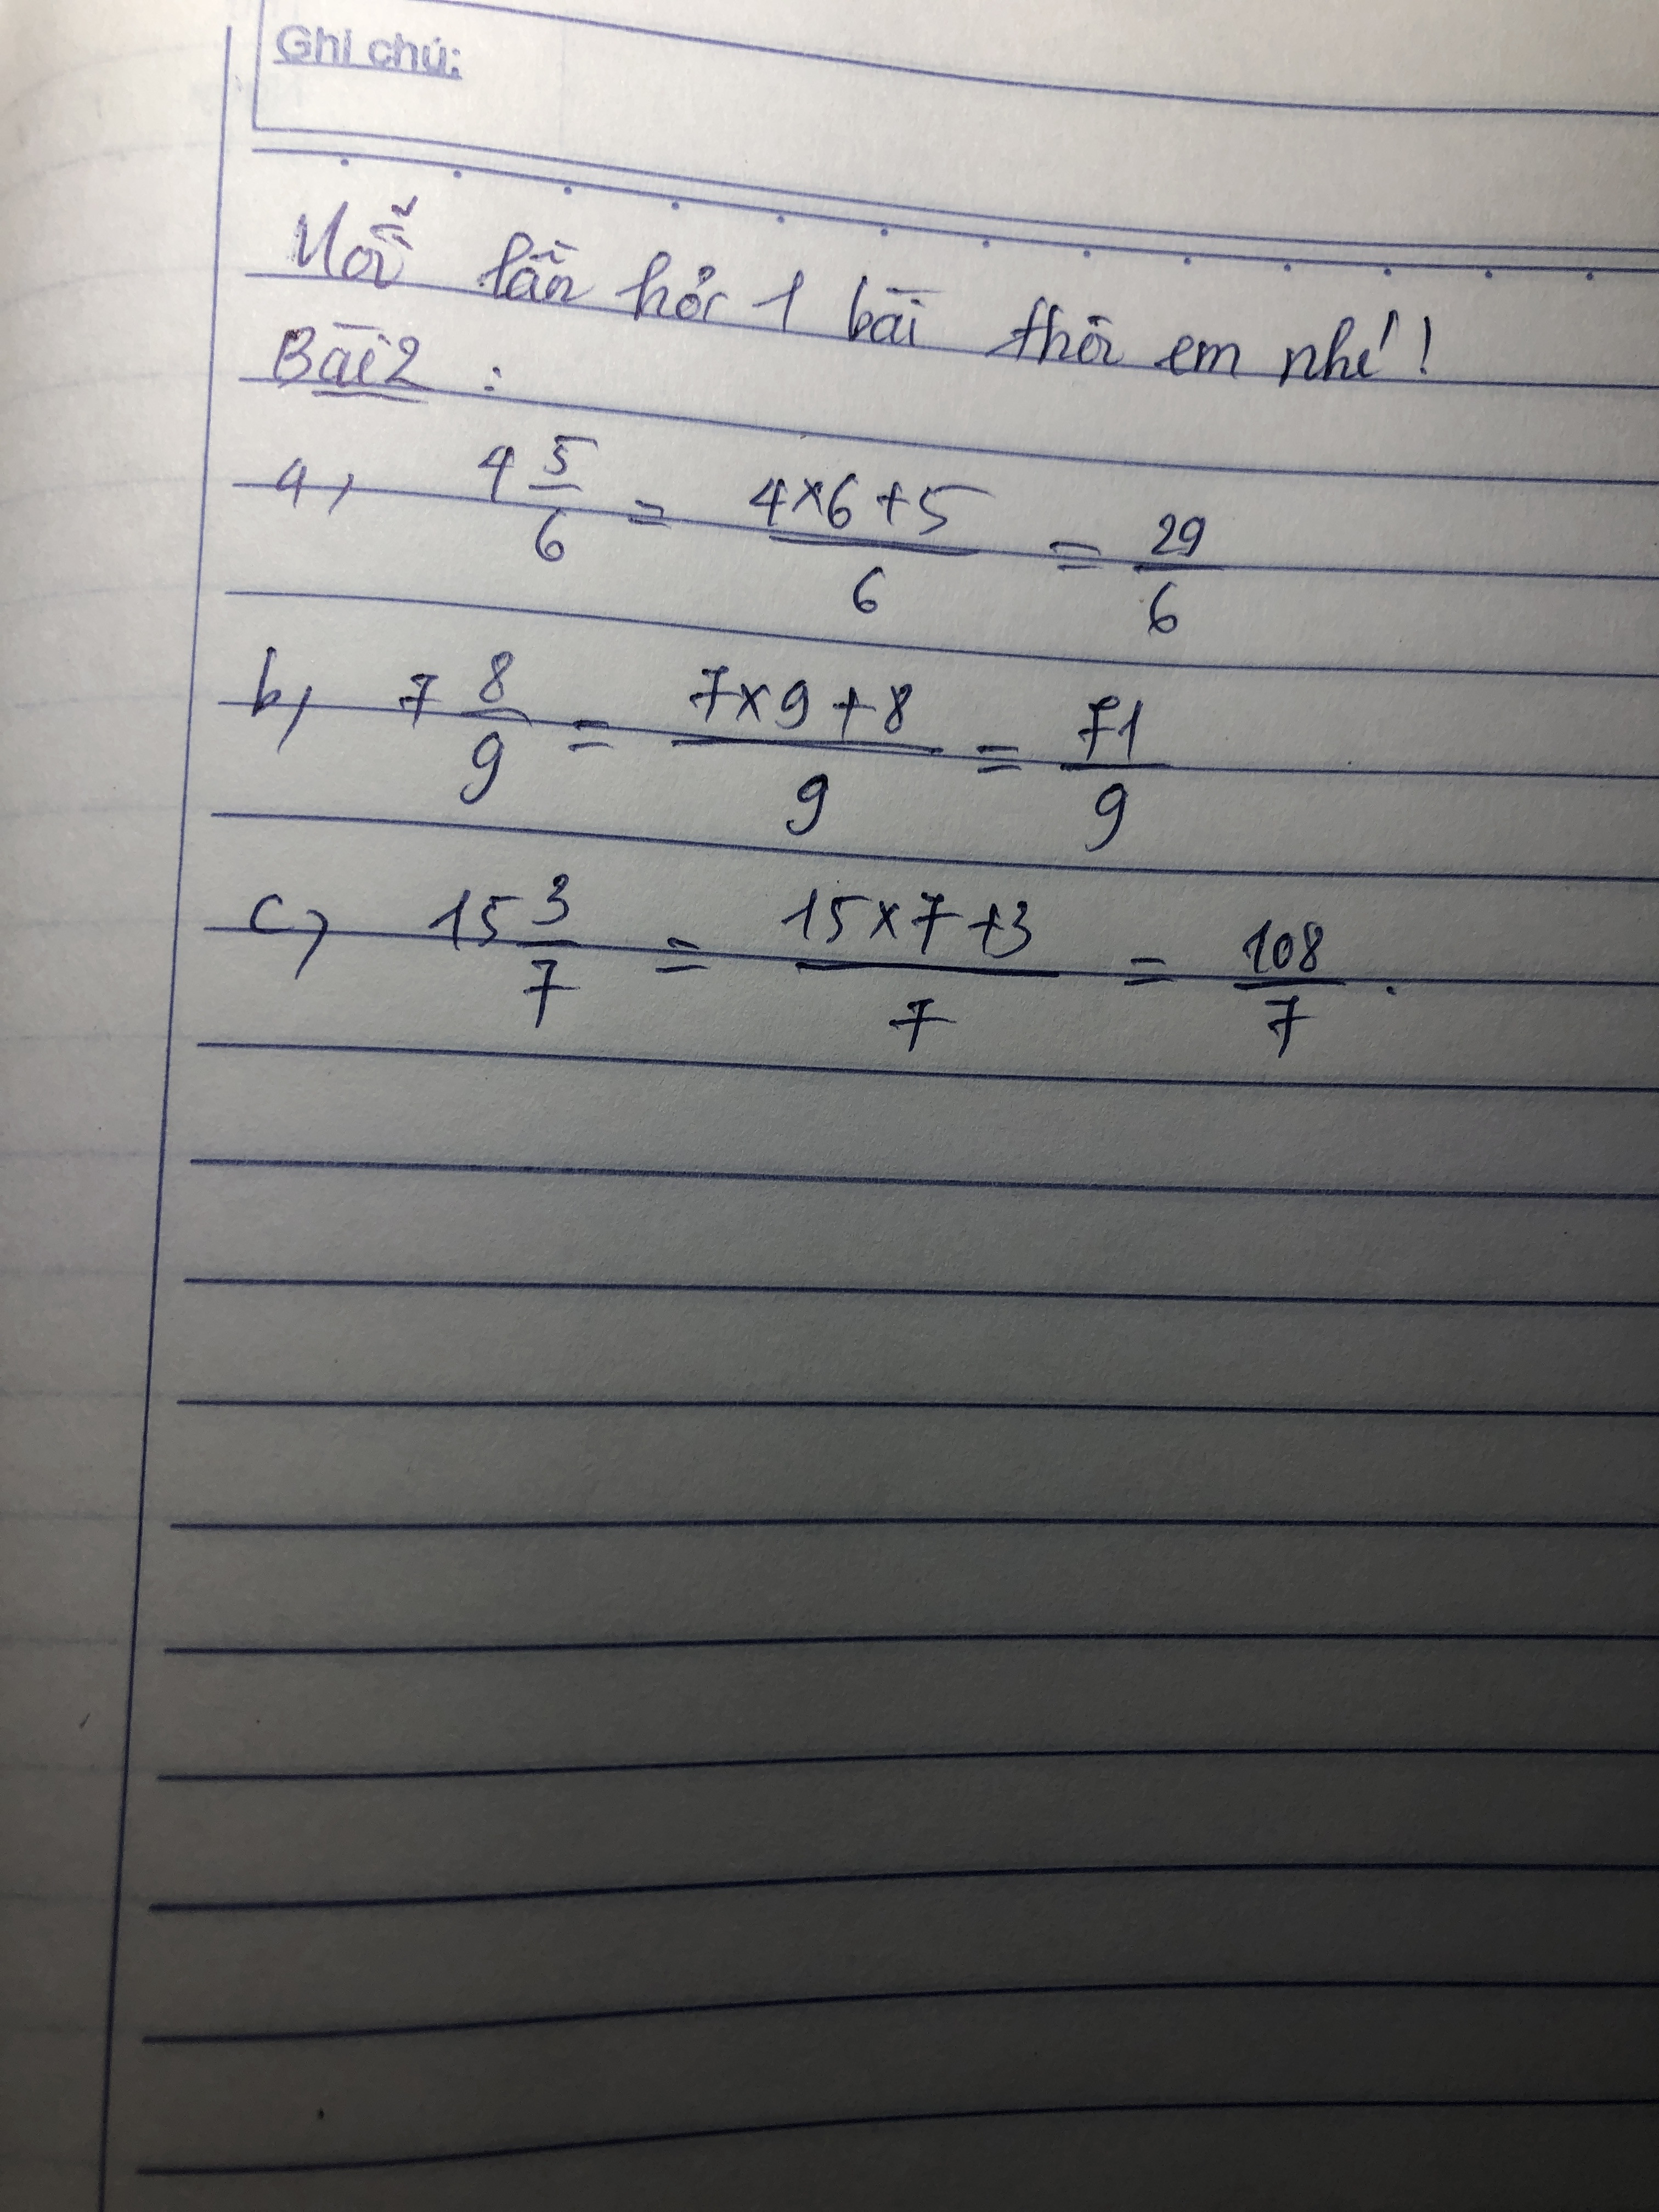 Ghi chú:
Mỗi lần hỏi 1 bài thôi em nhé!
Bài 2 :
a, 4 5/6 = (4×6+5)/6 = 29/6
b, 7 8/9 = (7×9+8)/9 = 71/9
c, 15 3/7 = (15×7+3)/7 = 108/7 .